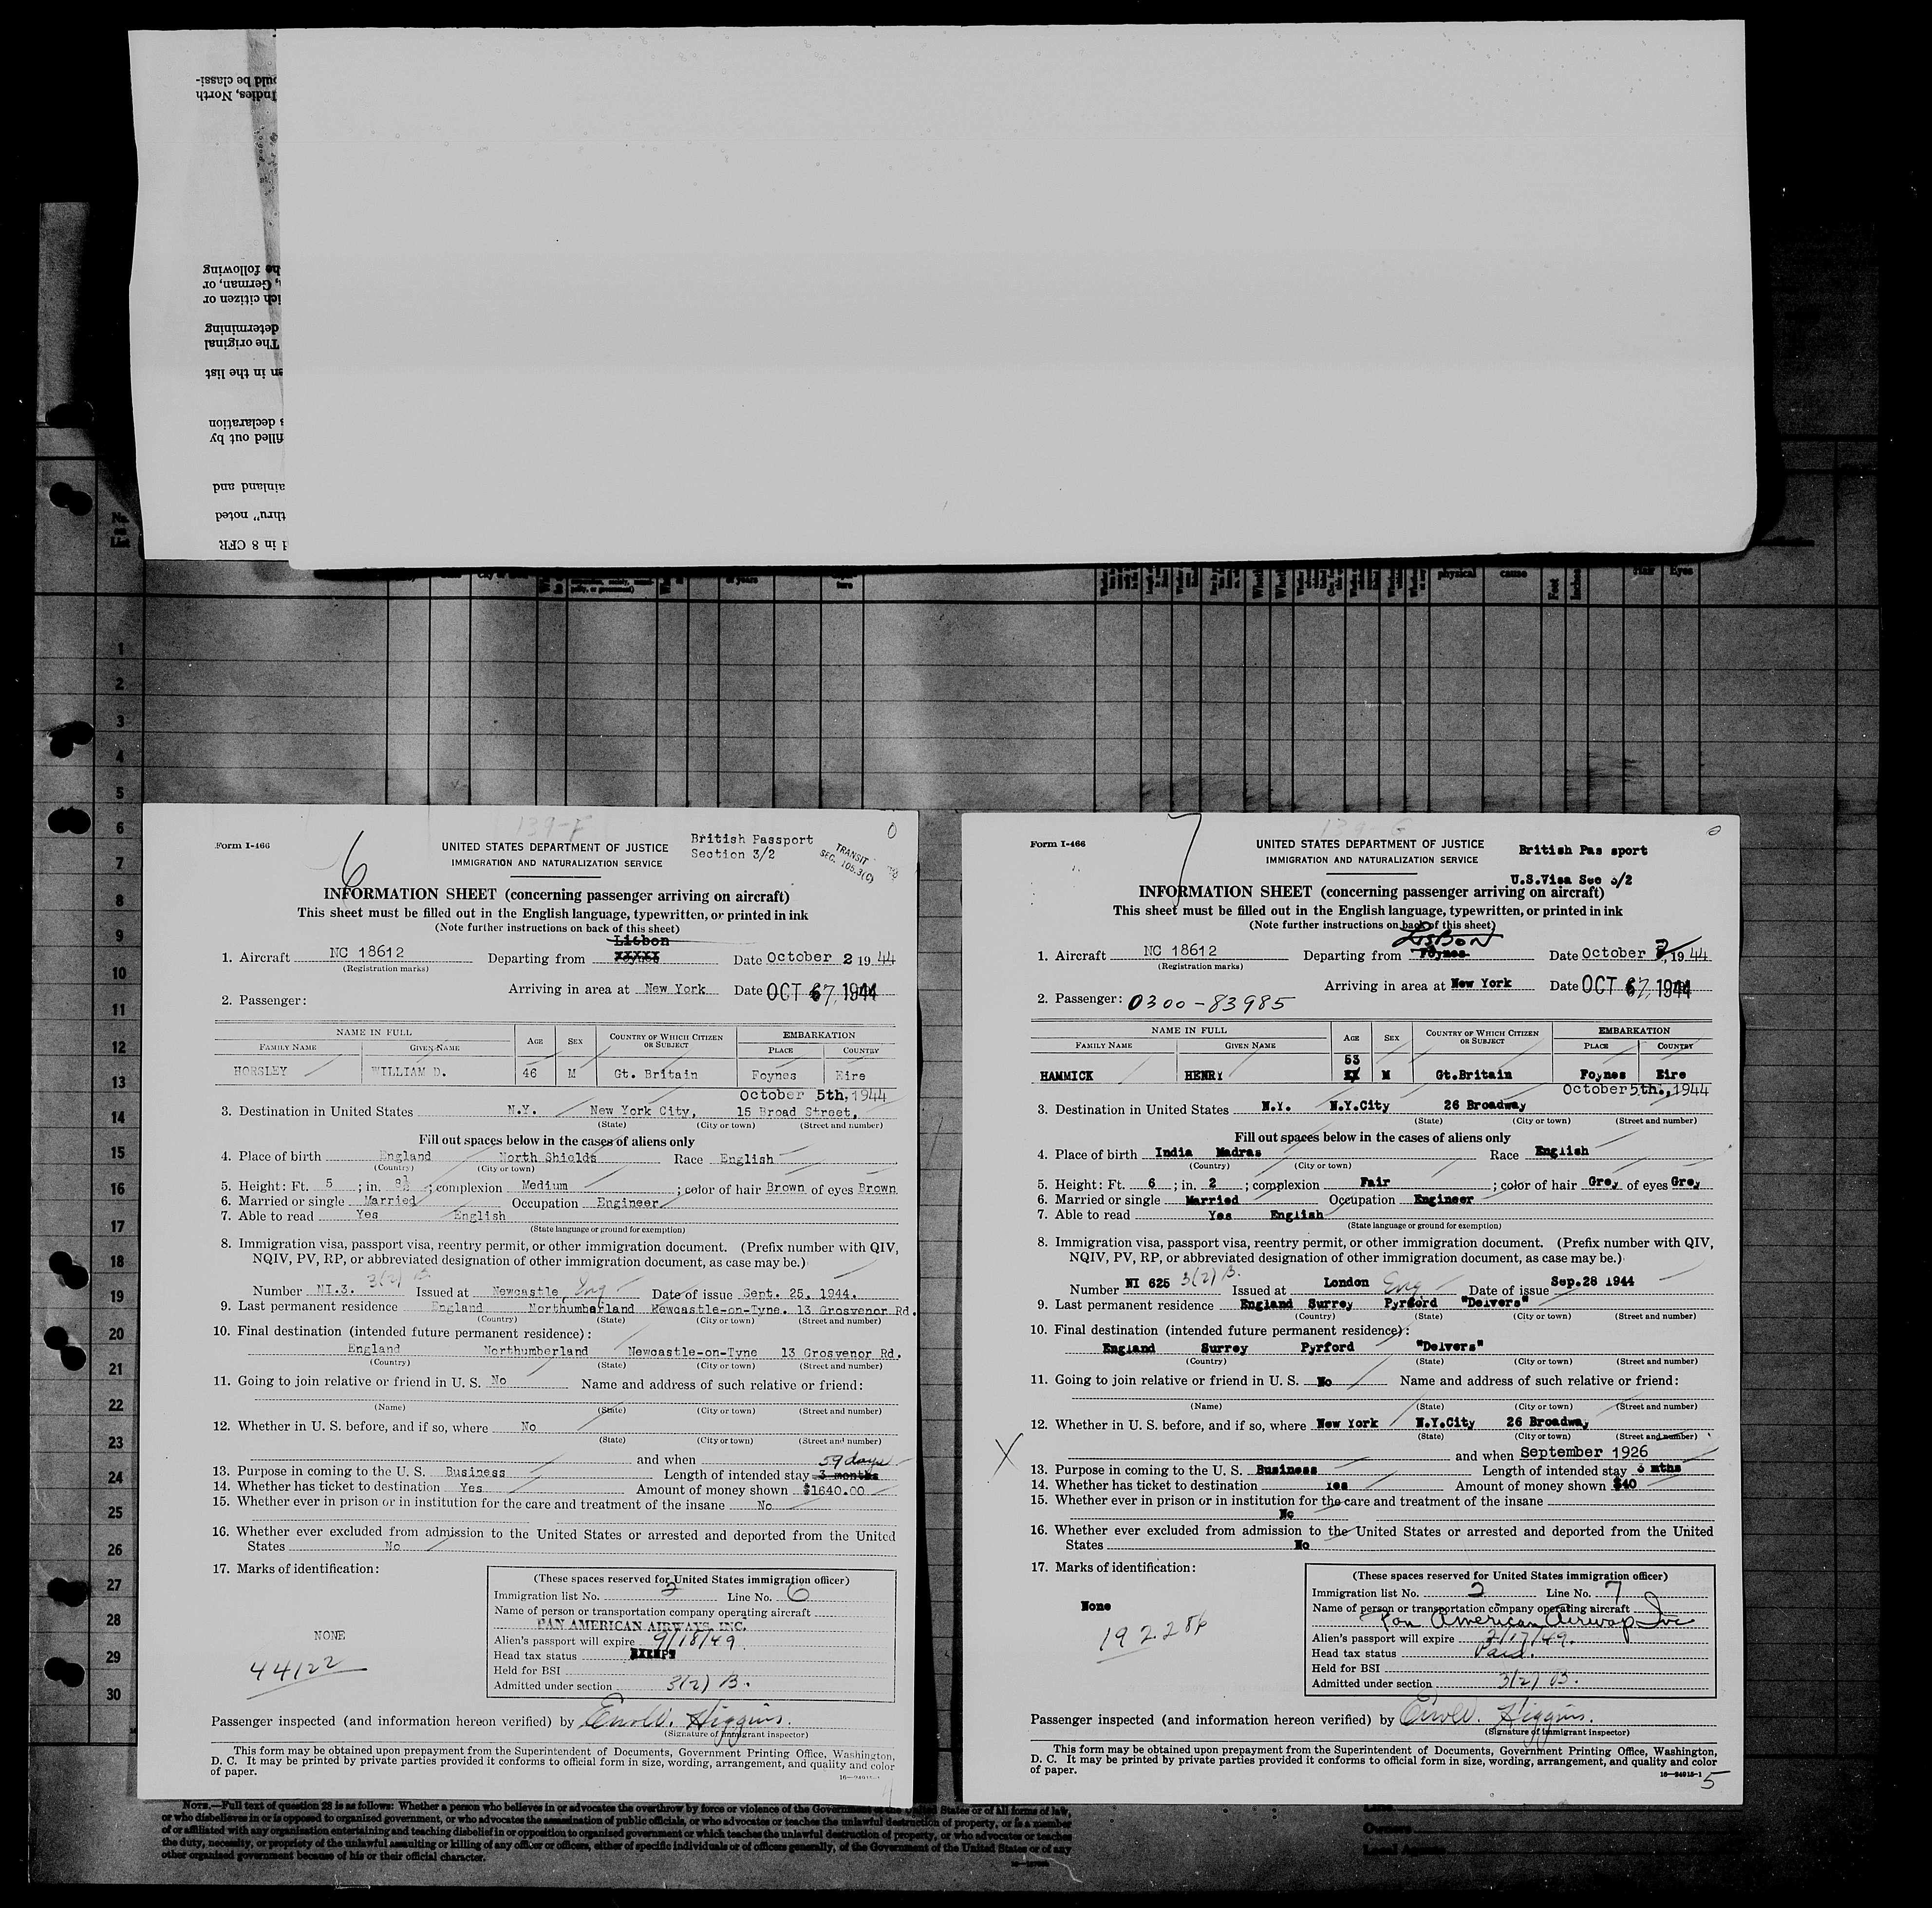 ould be classi-
Indies, North
he following
, German, or
ich citizen or
determining
The original
en in the list
s declaration
filled out by
ainland and
thru" noted
d in 8 CFR
No.
on
List
physical
cause
Feet
Inches
Hair
Eyes
1
2
3
4
5
6
7
8
9
10
11
12
13
14
15
16
17
18
19
20
21
22
23
24
25
26
27
28
29
30
139-F
6
Form I-466
UNITED STATES DEPARTMENT OF JUSTICE
IMMIGRATION AND NATURALIZATION SERVICE
British Passport
Section 3/2
TRANSIT
SEC. 105.3(C)
0
INFORMATION SHEET (concerning passenger arriving on aircraft)
This sheet must be filled out in the English language, typewritten, or printed in ink
(Note further instructions on back of this sheet)
Lisbon
1. Aircraft NC 18612 Departing from Foynes Date October 2 1944
(Registration marks)
Arriving in area at New York Date OCT 67, 1944
2. Passenger:
NAME IN FULL
FAMILY NAME GIVEN NAME AGE SEX COUNTRY OF WHICH CITIZEN OR SUBJECT EMBARKATION
PLACE COUNTRY
HORSLEY WILLIAM D. 46 M Gt. Britain Foynes Eire
October 5th, 1944
3. Destination in United States N.Y. New York City, 15 Broad Street,
(State) (City or town) (Street and number)
Fill out spaces below in the cases of aliens only
4. Place of birth England North Shields Race English
(Country) (City or town)
5. Height: Ft. 5 ; in. 8½ ; complexion Medium ; color of hair Brown of eyes Brown
6. Married or single Married Occupation Engineer
7. Able to read Yes English
(State language or ground for exemption)
8. Immigration visa, passport visa, reentry permit, or other immigration document. (Prefix number with QIV,
NQIV, PV, RP, or abbreviated designation of other immigration document, as case may be.)
3(2) B.
Number NI.3. Issued at Newcastle, Eng Date of issue Sept. 25, 1944.
9. Last permanent residence England Northumberland Newcastle-on-Tyne. 13 Grosvenor Rd.
(Country) (State) (City or town) (Street and number)
10. Final destination (intended future permanent residence):
England Northumberland Newcastle-on-Tyne 13 Grosvenor Rd.
(Country) (State) (City or town) (Street and number)
11. Going to join relative or friend in U. S. No Name and address of such relative or friend:
(Name) (State) (City or town) (Street and number)
12. Whether in U. S. before, and if so, where No
(State) (City or town) (Street and number)
and when
59 days
13. Purpose in coming to the U. S. Business Length of intended stay 3 months
14. Whether has ticket to destination Yes Amount of money shown $1640.00
15. Whether ever in prison or in institution for the care and treatment of the insane No
16. Whether ever excluded from admission to the United States or arrested and deported from the United
States No
17. Marks of identification:
NONE
44122
(These spaces reserved for United States immigration officer)
Immigration list No. 2 Line No. 6
Name of person or transportation company operating aircraft
PAN AMERICAN AIRWAYS, INC.
Alien's passport will expire 9/18/49.
Head tax status EXEMPT
Held for BSI
Admitted under section 3(2) B.
Passenger inspected (and information hereon verified) by Errol W. Higgins.
(Signature of immigrant inspector)
This form may be obtained upon prepayment from the Superintendent of Documents, Government Printing Office, Washington,
D. C. It may be printed by private parties provided it conforms to official form in size, wording, arrangement, and quality and color
of paper.
139-G
7
Form I-466
UNITED STATES DEPARTMENT OF JUSTICE
IMMIGRATION AND NATURALIZATION SERVICE
British Pas sport
U.S.Visa Sec 3/2
INFORMATION SHEET (concerning passenger arriving on aircraft)
This sheet must be filled out in the English language, typewritten, or printed in ink
(Note further instructions on back of this sheet)
LISBON
1. Aircraft NC 18612 Departing from Foynes Date October 2, 1944
(Registration marks)
Arriving in area at New York Date OCT 67, 1944
2. Passenger: 0300-83985
NAME IN FULL
FAMILY NAME GIVEN NAME AGE SEX COUNTRY OF WHICH CITIZEN OR SUBJECT EMBARKATION
PLACE COUNTRY
53
HAMMICK HENRY XX M Gt.Britain Foynes Eire
October 5th., 1944
3. Destination in United States N.Y. N.Y.City 26 Broadway
(State) (City or town) (Street and number)
Fill out spaces below in the cases of aliens only
4. Place of birth India Madras Race English
(Country) (City or town)
5. Height: Ft. 6 ; in. 2 ; complexion Fair ; color of hair Grey of eyes Grey
6. Married or single Married Occupation Engineer
7. Able to read Yes English
(State language or ground for exemption)
8. Immigration visa, passport visa, reentry permit, or other immigration document. (Prefix number with QIV,
NQIV, PV, RP, or abbreviated designation of other immigration document, as case may be.)
Number NI 625 3(2) B. Issued at London Eng Date of issue Sep.28 1944
9. Last permanent residence England Surrey Pyrford "Delvers"
(Country) (State) (City or town) (Street and number)
10. Final destination (intended future permanent residence):
England Surrey Pyrford "Delvers"
(Country) (State) (City or town) (Street and number)
11. Going to join relative or friend in U. S. No Name and address of such relative or friend:
(Name) (State) (City or town) (Street and number)
12. Whether in U. S. before, and if so, where New York N.Y.City 26 Broadway
(State) (City or town) (Street and number)
X
and when September 1926
13. Purpose in coming to the U. S. Business Length of intended stay 3 mths
14. Whether has ticket to destination Yes Amount of money shown $40
15. Whether ever in prison or in institution for the care and treatment of the insane
No
16. Whether ever excluded from admission to the United States or arrested and deported from the United
States No
17. Marks of identification:
None
(These spaces reserved for United States immigration officer)
Immigration list No. 2 Line No. 7
Name of person or transportation company operating aircraft
Pan American Airways Inc
Alien's passport will expire 2/17/49.
Head tax status Paid.
Held for BSI
Admitted under section 3(2) B.
Passenger inspected (and information hereon verified) by Errol W. Higgins.
(Signature of immigrant inspector)
This form may be obtained upon prepayment from the Superintendent of Documents, Government Printing Office, Washington,
D. C. It may be printed by private parties provided it conforms to official form in size, wording, arrangement, and quality and color
of paper.
16—24915-1
5
NOTE.—Full text of question 28 is as follows: Whether a person who believes in or advocates the overthrow by force or violence of the Government of the United States or of all forms of law,
or who disbelieves in or is opposed to organized government, or who advocates the assassination of public officials, or who advocates or teaches the unlawful destruction of property, or is a member
of or affiliated with any organization entertaining and teaching disbelief in or opposition to organized government or which teaches the unlawful destruction of property, or who advocates or teaches
the duty, necessity, or propriety of the unlawful assaulting or killing of any officer or officers, either of specific individuals or of officers generally, of the Government of the United States or of any
other organized government because of his or their official character.
Owners
Local Agents